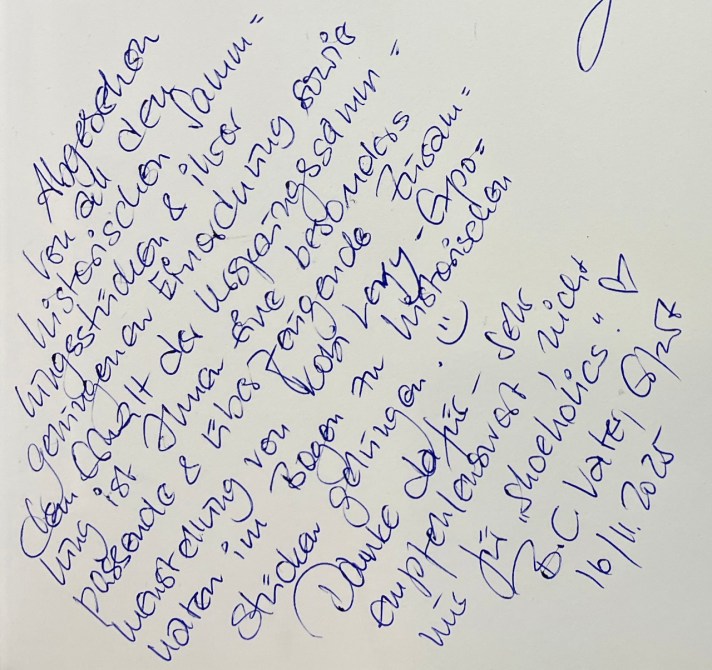 Abgesehen
von all den
historischen Samm=
lungsstücken & ihrer
gelungenen Einordnung sowie
dem Erhalt der Ursprungssamm=
lung ist Ihnen eine besonders
passende & überzeugende Zusam=
menstellung von Kobi Levy-Expo=
naten im Bogen zu historischen
Stücken gelungen. :)
Danke dafür – sehr
empfehlenswert, nicht
nur für „Shoeholics." ♡
B.C.
16/11.2025